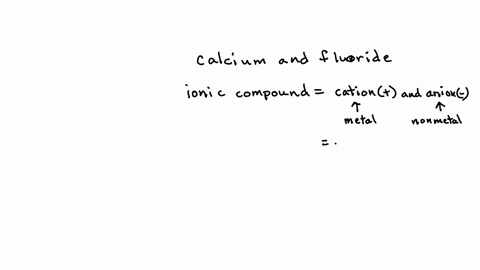 calcium and fluoride
ionic compound = cation(+) and anion(-)
↑ ↑
metal nonmetal
= .